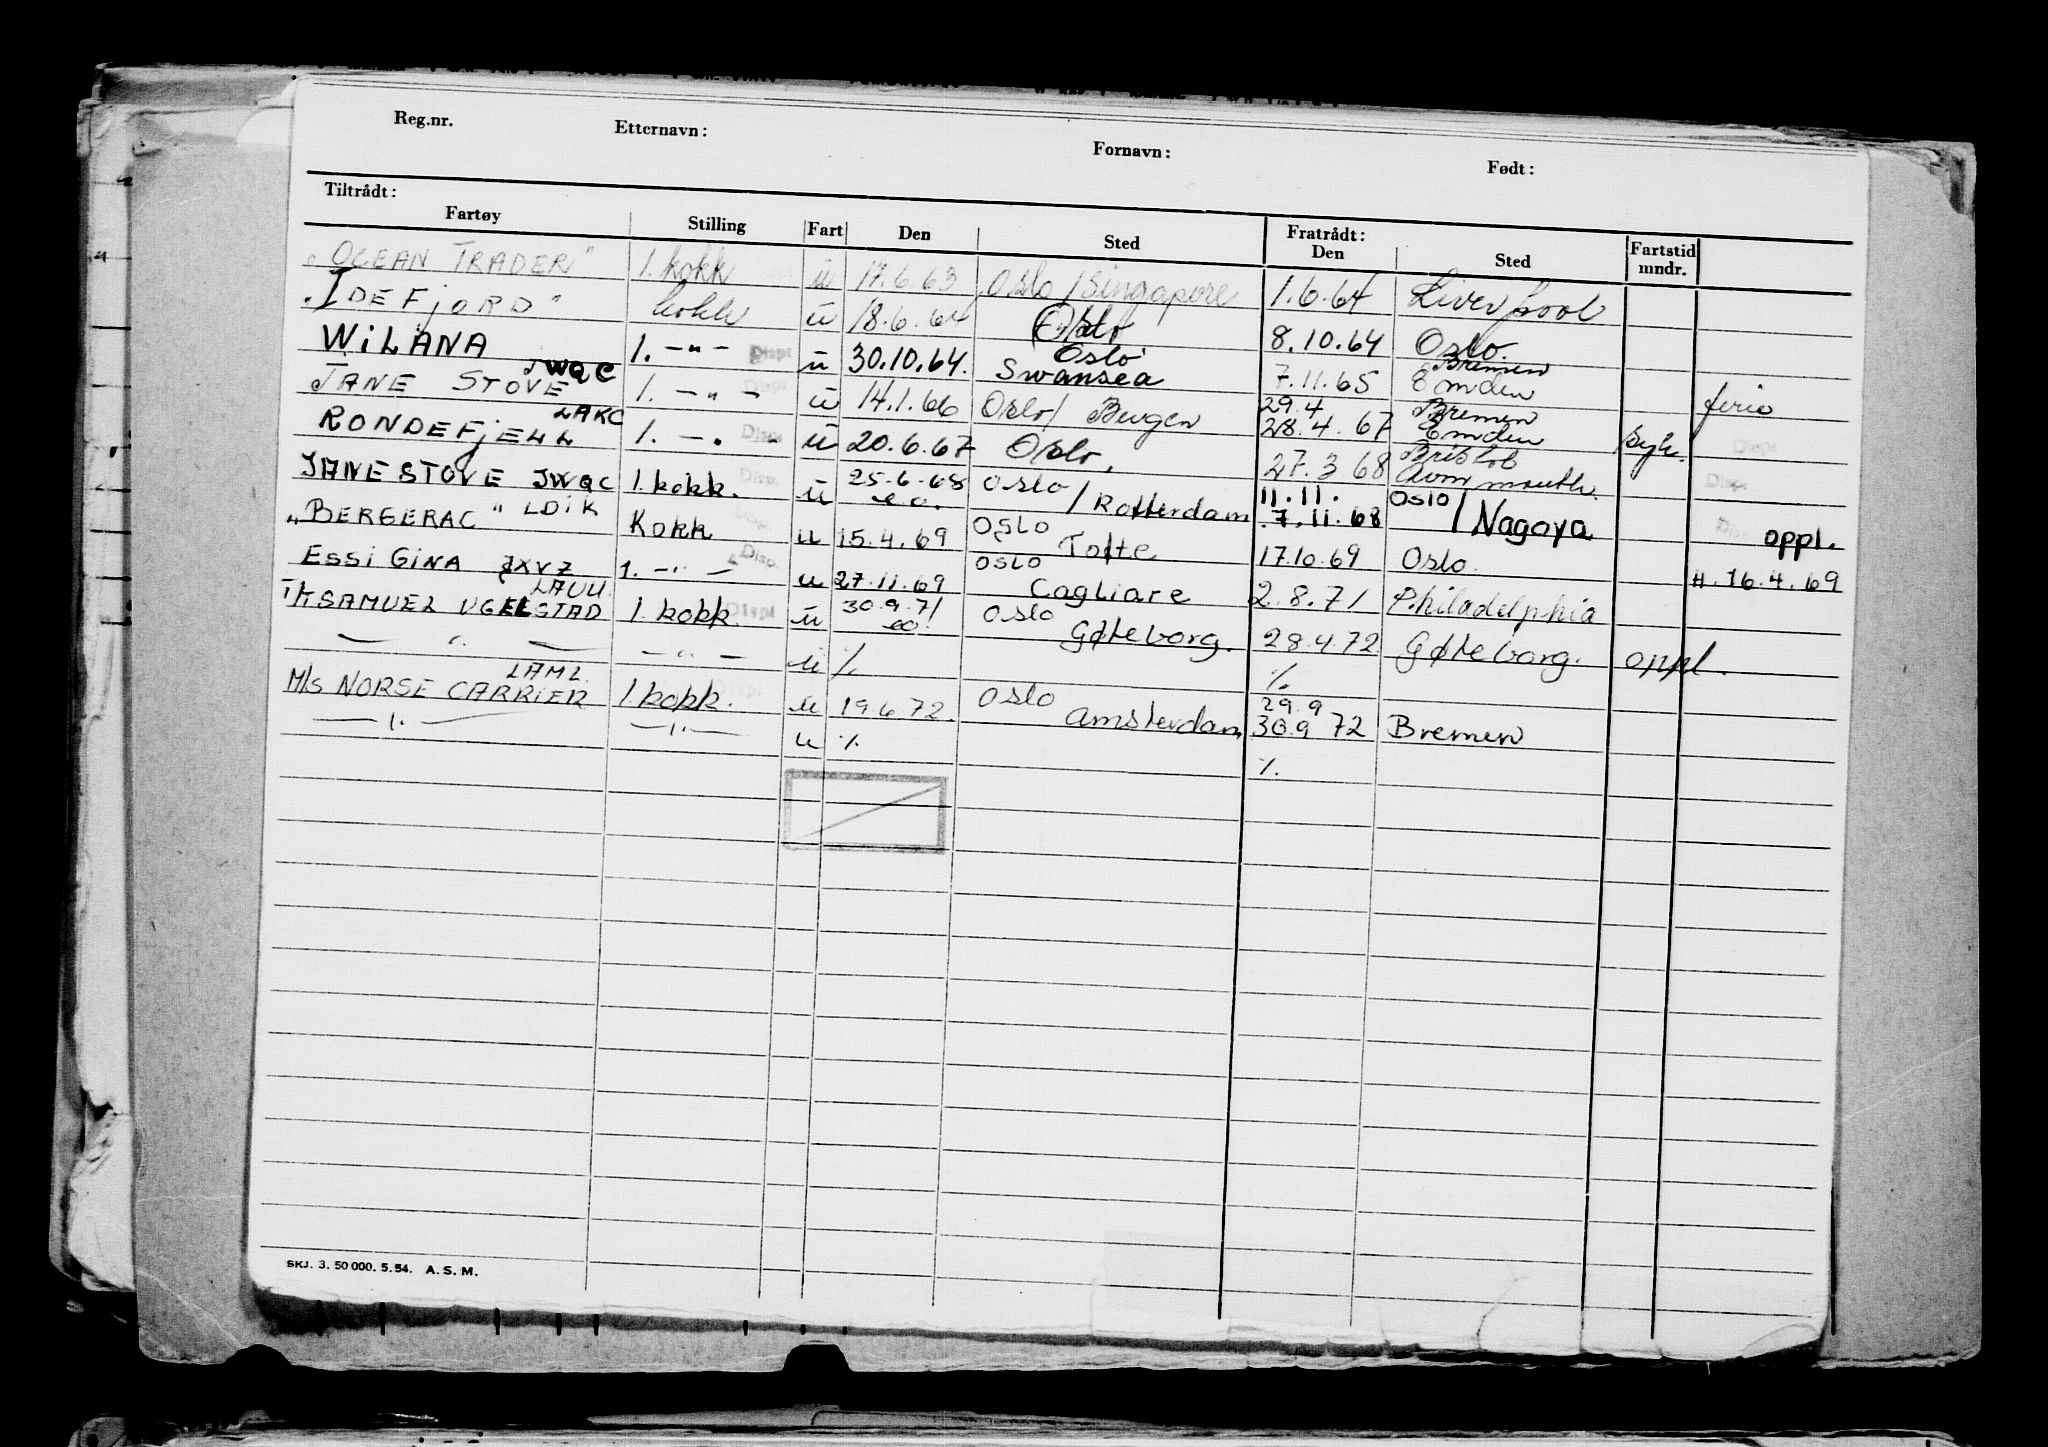 Reg.nr. Etternavn: Fornavn: Født:
Tiltrådt: Fratrådt:
Fartøy Stilling Fart Den Sted Den Sted Fartstid mndr.
"OCEAN TRADER" 1. kokk u 17.6.63 Oslo/Singapore 1.6.64 Liverpool
"IDEFJORD" kokk u 18.6.64 Oslo 8.10.64 Oslo.
WILANA 1. -"- Disp. u 30.10.64. Oslo Swansea 7.11.65 Bremen Emden ferie
JANE STOVE JWQC 1. -"- Disp. u 14.1.66 Oslo/Bergen 29.4 28.4.67 Bremen Emden syk.
RONDEFJELL LAKC 1. -"- Disp. u 20.6.67 Oslo. 27.3 68 Bristol Avonmouth. Disp.
JANE STOVE JWQC 1. kokk. Disp. u 25.6.68 Oslo/Rotterdam 11.11. 7.11.68 OSLO/Nagoya Disp. oppl.
"BERGERAC" LDIK Kokk u 15.4.69 OSLO Tofte 17.10.69 Oslo. 16.4.69
ESSI GINA JXVZ 1. -"- Disp. u 27.11.69 OSLO Cagliare 2.8.71 Philadelphia
T/K SAMUEL UGELSTAD LAUU 1. kokk. Disp. u 30.9.71 OSLO Gøteborg. 28.4.72 Gøteborg. oppl.
-"- -"- u % %
M/S NORSE CARRIER LAML 1. kokk. u 19.6.72. OSLO Amsterdam 29.9 30.9 72 Bremen
-"- -"- u % %
SKJ. 3. 50 000. 5. 54. A. S. M.